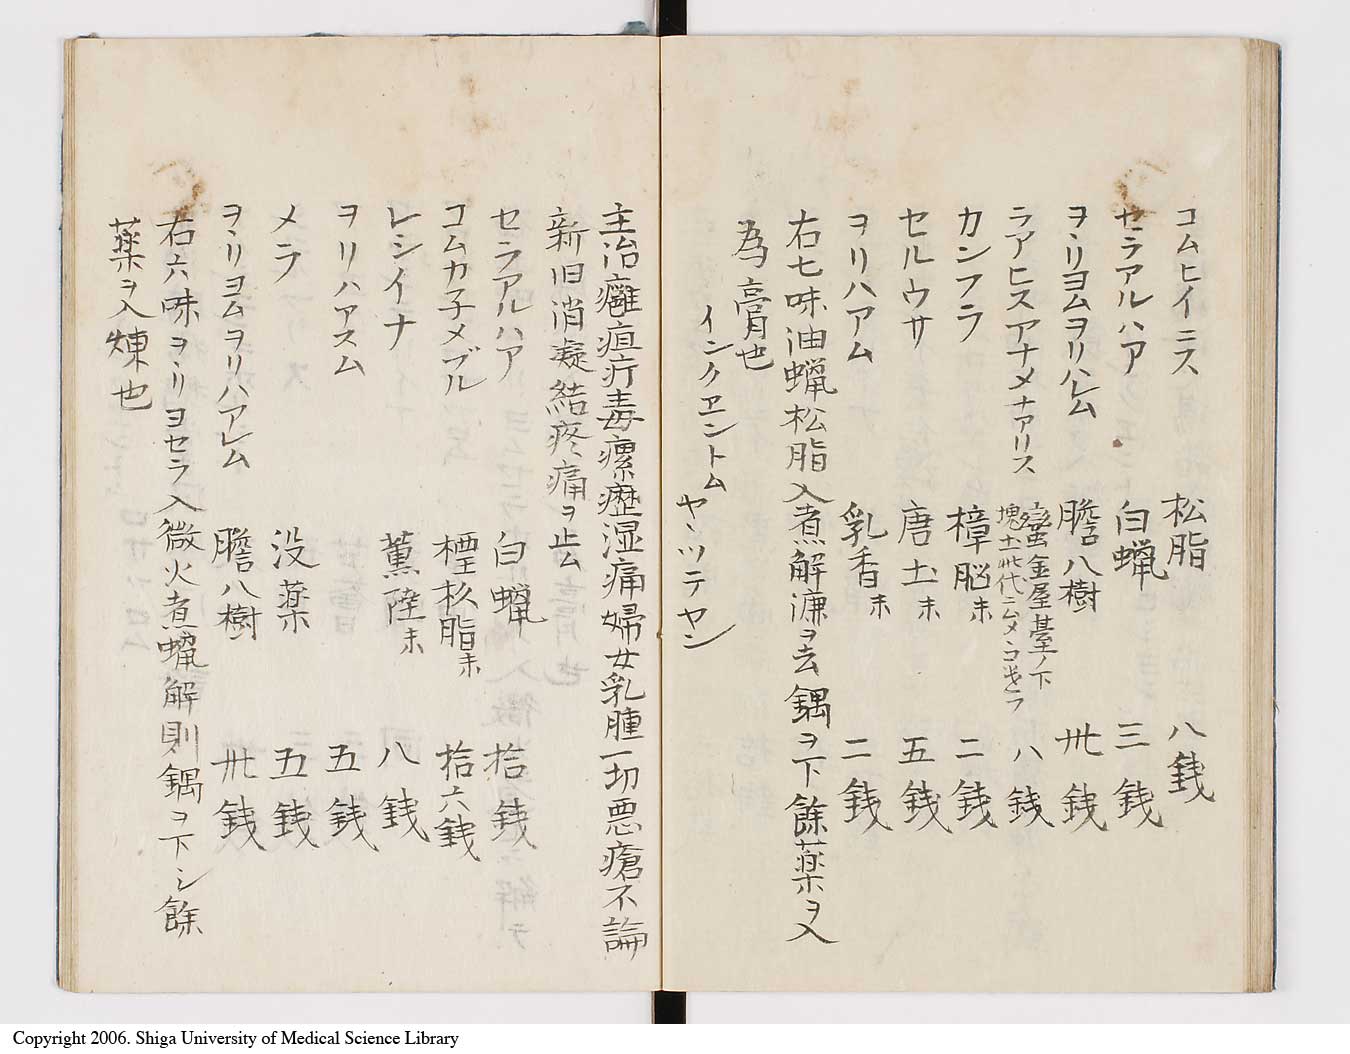 コムヒイニス 松脂 八銭
セラアルハア 白蝋 三銭
ヲヽリヨムヲリハレム 膽八樹 卅銭
ラアヒスアナメナアリス 蠻金屋臺ノ下 八銭
カンフラ 樟脳末 二銭
セルウサ 唐土末 五銭
ヲリハアム 乳香末 二銭
右七味油蝋松脂入煮解濂ヲ去鍋ヲ下餘薬ヲ入
為膏也
インクヱントム ヤンツテヤン
主治癰疽疔毒瘰癧湿痛婦女乳腫一切悪瘡不論
新旧消凝結疼痛ヲ止ム
セラアルハア 白蝋 拾銭
コムカ子メブル 脂末 拾六銭
レシイナ 薫陸末 八銭
ヲリハアスム 五銭
メラ 没薬 五銭
ヲヽリヨムヲリハアレム 膽八樹 卅銭
右六味ヲヽリヨセラ入微火煮蝋解則鍋ヲ下シ餘
薬ヲ入煉也
Copyright 2006. Shiga University of Medical Science Library